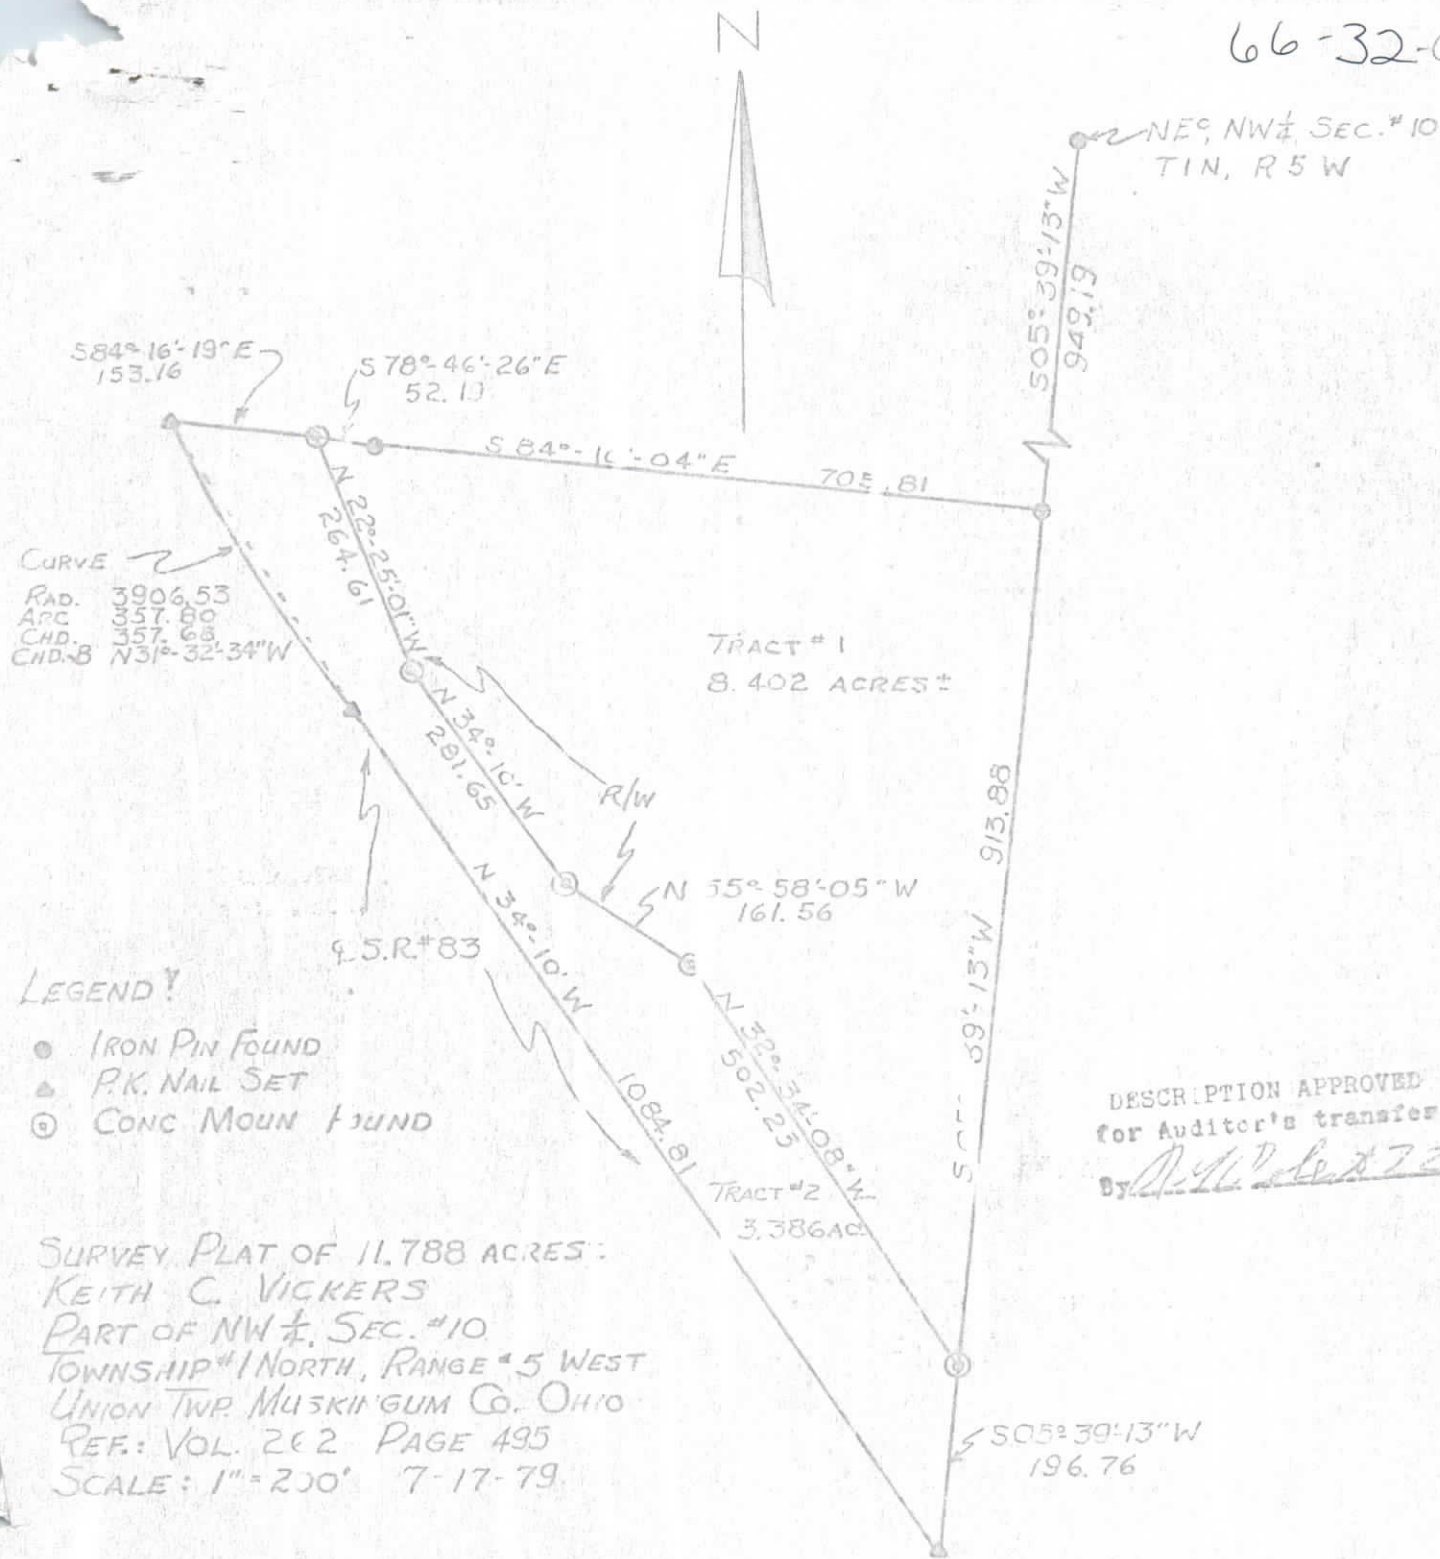 N
66-32-
NEC, NW¼, SEC. #10
T1N, R5W
S05°-39'-13"W
949.19
S84°-16'-19"E
153.16
S78°-46'-26"E
52.19
S84°- -04"E
.81
N 22°-25'-01"W
264.61
CURVE
RAD. 3906.53
ARC 357.80
CHD. 357.68
CHD.B N31°-32'-34"W
TRACT #1
8.402 ACRES±
N 34°-10' W
281.65
R/W
913.88
39'-13"W
N 55°-58'-05"W
161.56
℄ S.R.#83
N 34°-10' W
1084.81
N 32°-34'-08"W
502.23
TRACT #2
3.386AC.
LEGEND
IRON PIN FOUND
P.K. NAIL SET
CONC MOUN FOUND
DESCRIPTION APPROVED
for Auditor's transfer
By
SURVEY PLAT OF 11.788 ACRES:
KEITH C. VICKERS
PART OF NW¼, SEC. #10
TOWNSHIP #1 NORTH, RANGE #5 WEST
UNION TWP. MUSKINGUM CO. OHIO
REF.: VOL. PAGE 495
SCALE: 1"=200' 7-17-79
S05°39'-13"W
196.76